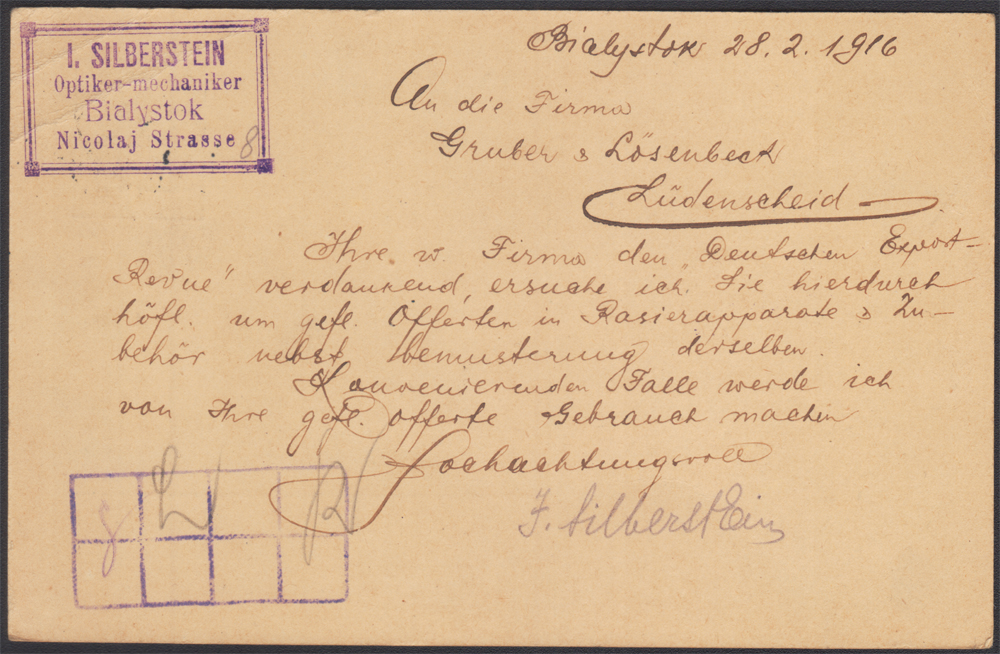 I. SILBERSTEIN
Optiker-mechaniker
Bialystok
Nicolaj Strasse 8
Bialystok 28.2.1916
An die Firma
Gruber & Lösenbeck
Lüdenscheid
Ihre w. Firma den „Deutschen Export-
Revue" verdankend, ersuche ich Sie hierdurch
höfl. um gefl. Offerten in Rasierapparate & Zu-
behör nebst bemusterung derselben.
Konvenierenden Falle werde ich
von Ihre gefl. Offerte Gebrauch machen
Hochachtungsvoll
J. Silberstein